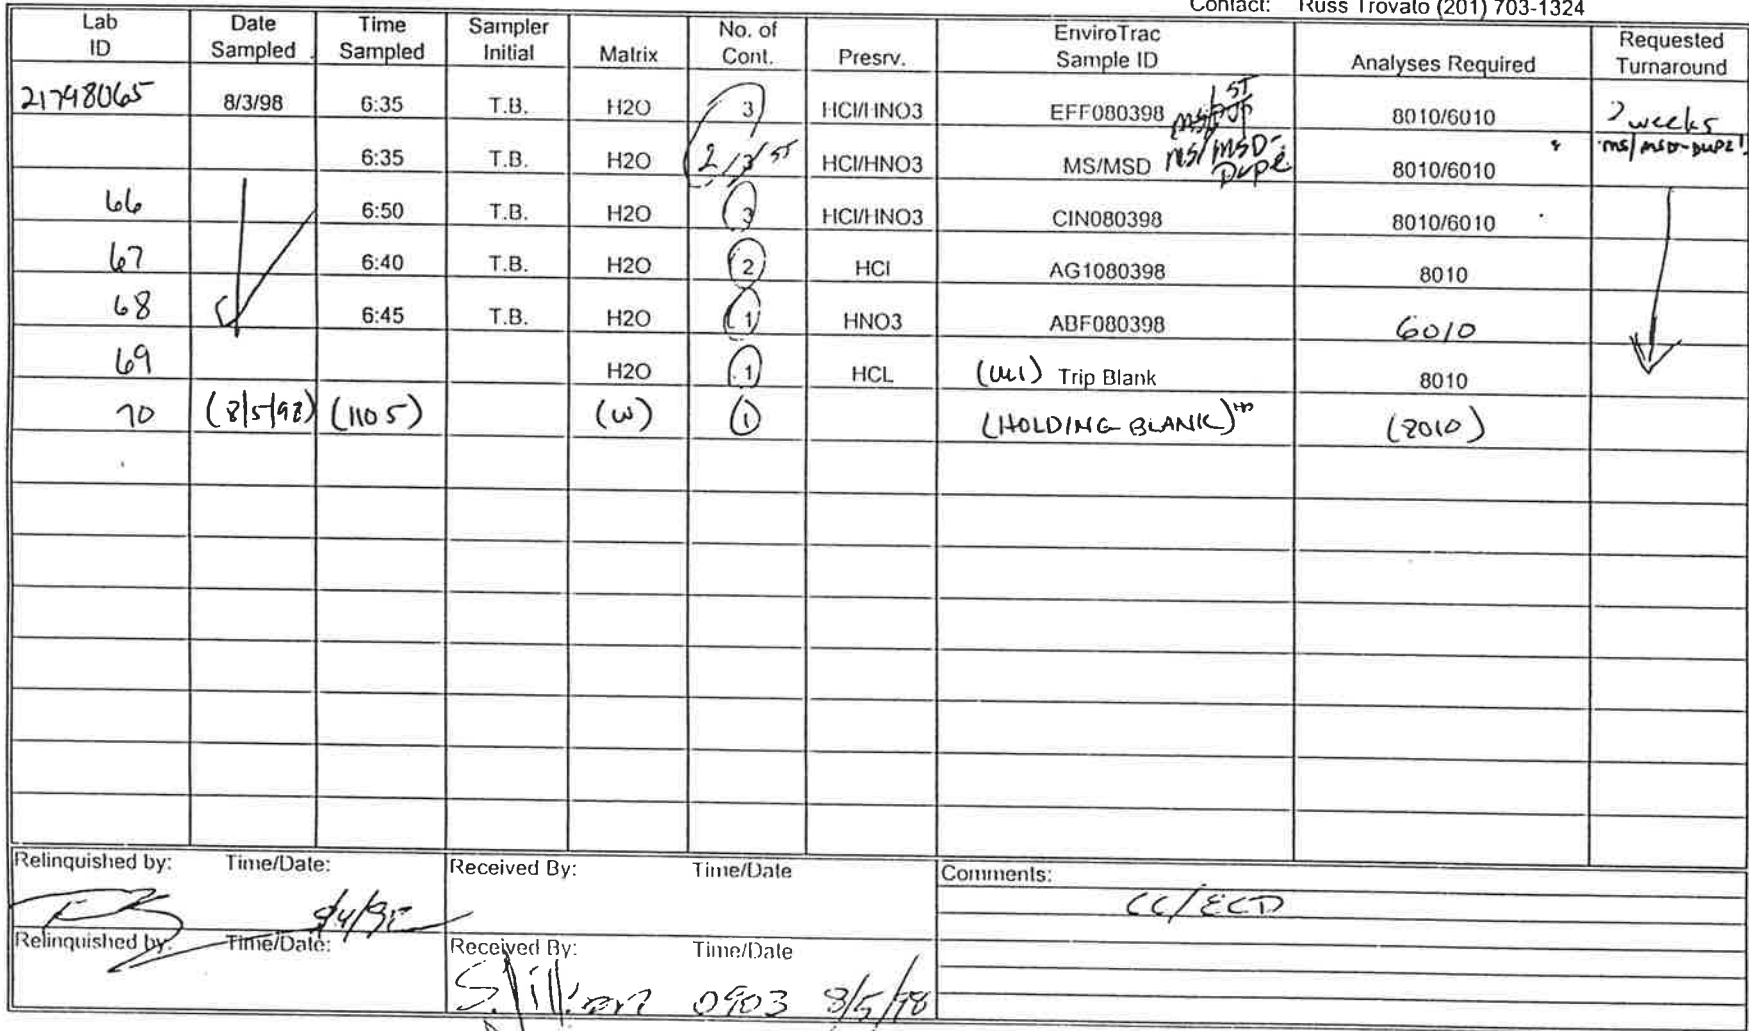 Contact: Russ Trovato (201) 703-1324
Lab ID Date Sampled Time Sampled Sampler Initial Matrix No. of Cont. Presrv. EnviroTrac Sample ID Analyses Required Requested Turnaround
21798065 8/3/98 6:35 T.B. H2O 3 HCl/HNO3 EFF080398 8010/6010 2 weeks
6:35 T.B. H2O 2 HCl/HNO3 MS/MSD MS/MSD-Dupe 8010/6010 MS/MSD-DUPE
66 6:50 T.B. H2O 3 HCl/HNO3 CIN080398 8010/6010
67 6:40 T.B. H2O 2 HCl AG1080398 8010
68 6:45 T.B. H2O 1 HNO3 ABF080398 6010
69 H2O 1 HCL Trip Blank 8010
70 (8/5/98) (1105) (W) 1 (HOLDING BLANK) (8010)
Relinquished by: Time/Date: Received By: Time/Date Comments:
8/4/98
Relinquished by: Time/Date: Received By: Time/Date
0903 8/5/98